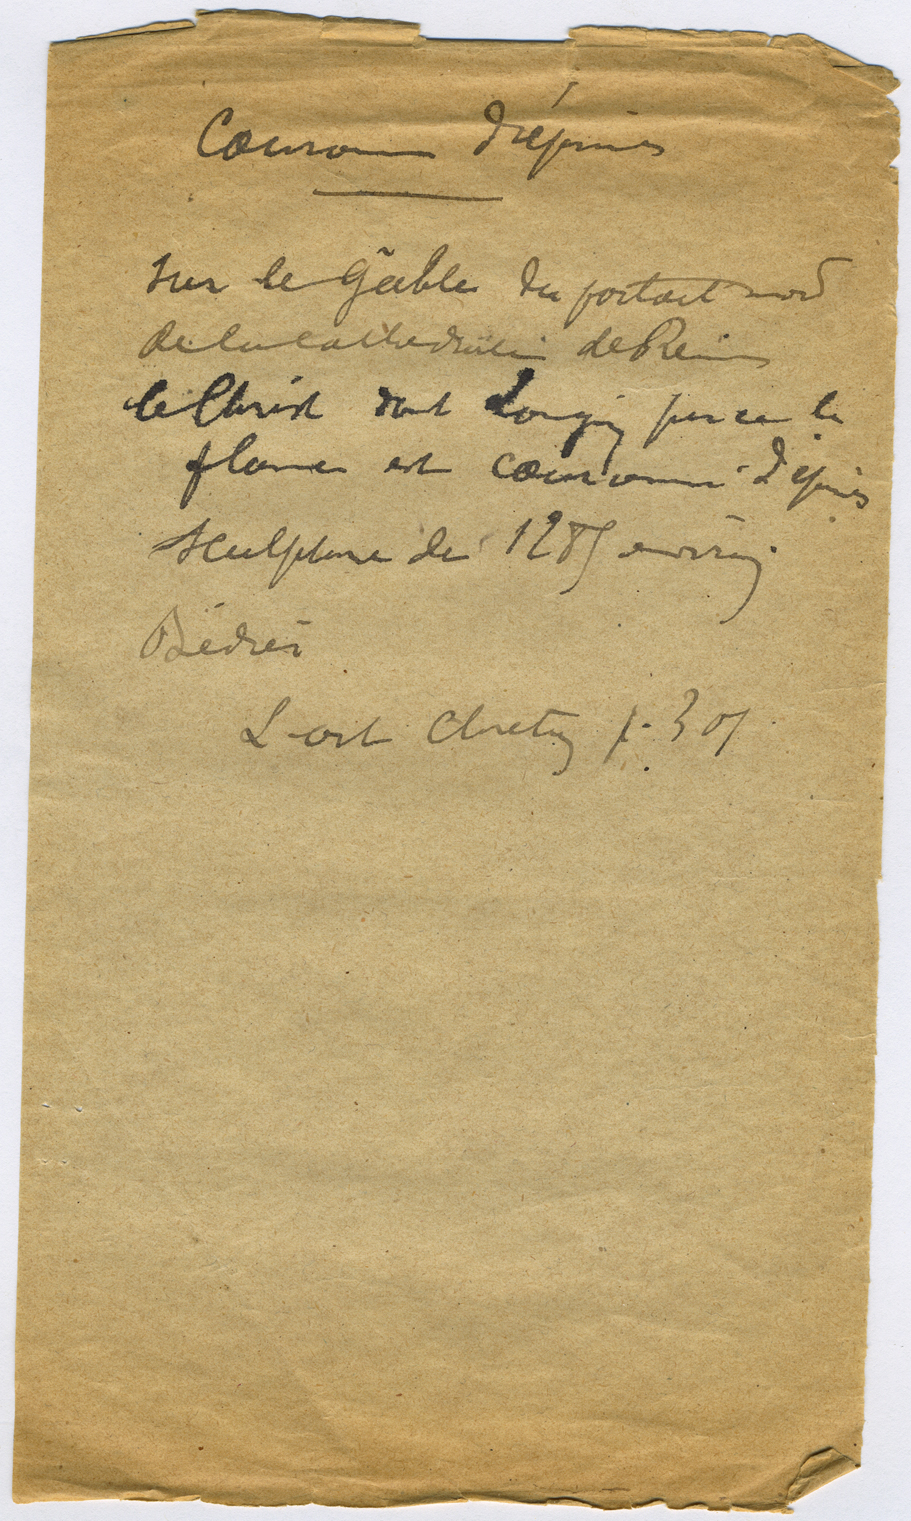 Couronne d'épines
sur le Gâble du portail nord
de la cathédrale de Reims
le Christ dont Longin perce le
flanc est couronné d'épines
sculpture de 1285 environ
L'art Chretien p. 307